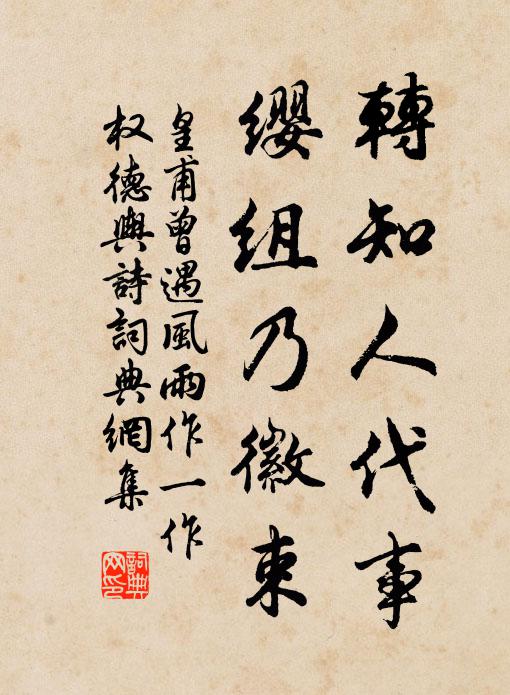 轉知人代事
纓組乃徽束
皇甫曾遇風雨作一作
权德輿詩詞典網集
詞典網印